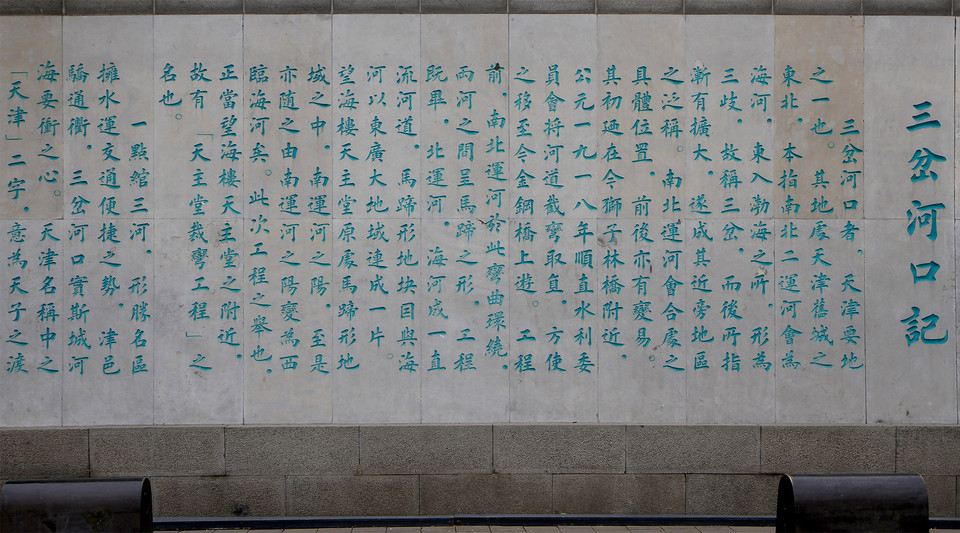 三岔河口記
三岔河口者，天津要地
之一也。其地處天津舊城之
東北，本指南北二運河會為
海河，東入渤海之所，形為
三歧，故稱三岔，而後所指
漸有擴大，遂成其近旁地區
之泛稱。南北運河會合處之
具體位置，前後亦有變易。
其初迺在今獅子林橋附近，
公元一九一八年順直水利委
員會將河道截彎取直，方使
之移至今金鋼橋上遊，工程
前，南北運河於此彎曲環繞，
兩河之間呈馬蹄之形。工程
既畢，北運河，海河成一直
流河道，馬蹄形地块目與海
河以東廣大地域連成一片
望海樓天主堂原處馬蹄形地
域之中，南運河之陽，至是
亦随之由南運河之陽變為西
臨海河矣。此次工程之舉也，
正當望海樓天主堂之附近，
故有「天主堂裁彎工程」之
名也。
一點綰三河，形勝名區
擁水運交通便捷之勢，津邑
驕通衢。三岔河口實斯城河
海要衝之心。天津名稱中之
「天津」二字，意為天子之渡